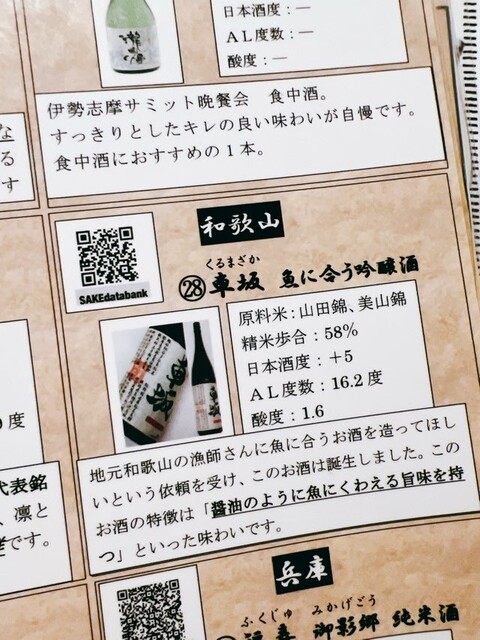 日本酒度：—
AL度数：—
酸度：—
伊勢志摩サミット晩餐会　食中酒。
すっきりとしたキレの良い味わいが自慢です。
食中酒におすすめの1本。
な
る
す
和歌山
SAKEdatabank
くるまざか
㉘車坂 魚に合う吟醸酒
原料米：山田錦、美山錦
精米歩合：58%
日本酒度：+5
AL度数：16.2度
酸度：1.6
車坂
地元和歌山の漁師さんに魚に合うお酒を造ってほし
いという依頼を受け、このお酒は誕生しました。この
お酒の特徴は「醤油のように魚にくわえる旨味を持
つ」といった味わいです。
度
代表銘
、凛と
です。
兵庫
ふくじゅ みかげごう
福寿 御影郷 純米酒